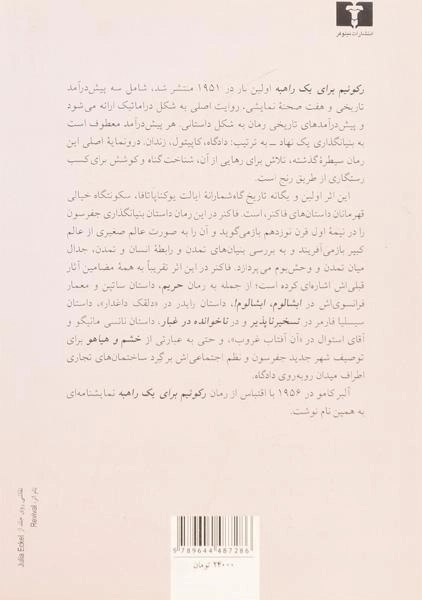 انتشارات نیلوفر
رکوئیم برای یک راهبه اولین بار در ۱۹۵۱ منتشر شد، شامل سه پیش‌درآمد
تاریخی و هفت صحنهٔ نمایشی. روایت اصلی به شکل دراماتیک ارائه می‌شود
و پیش‌درآمدهای تاریخی رمان به شکل داستانی. هر پیش‌درآمد معطوف است
به بنیانگذاری یک نهاد ــ به ترتیب: دادگاه، کاپیتول، زندان. درونمایهٔ اصلی این
رمان سیطرهٔ گذشته، تلاش برای رهایی از آن، شناخت گناه و کوشش برای کسب
رستگاری از طریق رنج است.
این اثر اولین و یگانه تاریخ گاه‌شمارانهٔ ایالت یوکناپاتافا، سکونتگاه خیالی
قهرمانان داستان‌های فاکنر، است. فاکنر در این رمان داستان بنیانگذاری جفرسون
را در نیمهٔ اول قرن نوزدهم بازمی‌گوید و آن را به صورت عالم صغیری از عالم
کبیر بازمی‌آفریند و به بررسی بنیان‌های تمدن و رابطهٔ انسان و تمدن، جدال
میان تمدن و وحش‌بوم می‌پردازد. فاکنر در این اثر تقریباً به همهٔ مضامین آثار
قبلی‌اش اشاره‌ای کرده است؛ از جمله به رمان حریم، داستان ساتپن و معمار
فرانسوی‌اش در ابشالوم، ابشالوم!، داستان رایدر در «دلقک داغدار»، داستان
سیسلیا فارمر در تسخیرناپذیر و در ناخوانده در غبار، داستان نانسی مانیگو و
آقای استوال در «آن آفتاب غروب»، و حتی به عبارتی از خشم و هیاهو برای
توصیف شهر جدید جفرسون و نظم اجتماعی‌اش برگِرد ساختمان‌های تجاری
اطراف میدان روبه‌روی دادگاه.
آلبر کامو در ۱۹۵۶ با اقتباس از رمان رکوئیم برای یک راهبه نمایشنامه‌ای
به همین نام نوشت.
نقاشی روی جلد از Julia Eckel
نام اثر: Revival
9 789644 487286
۲۴۰۰۰ تومان